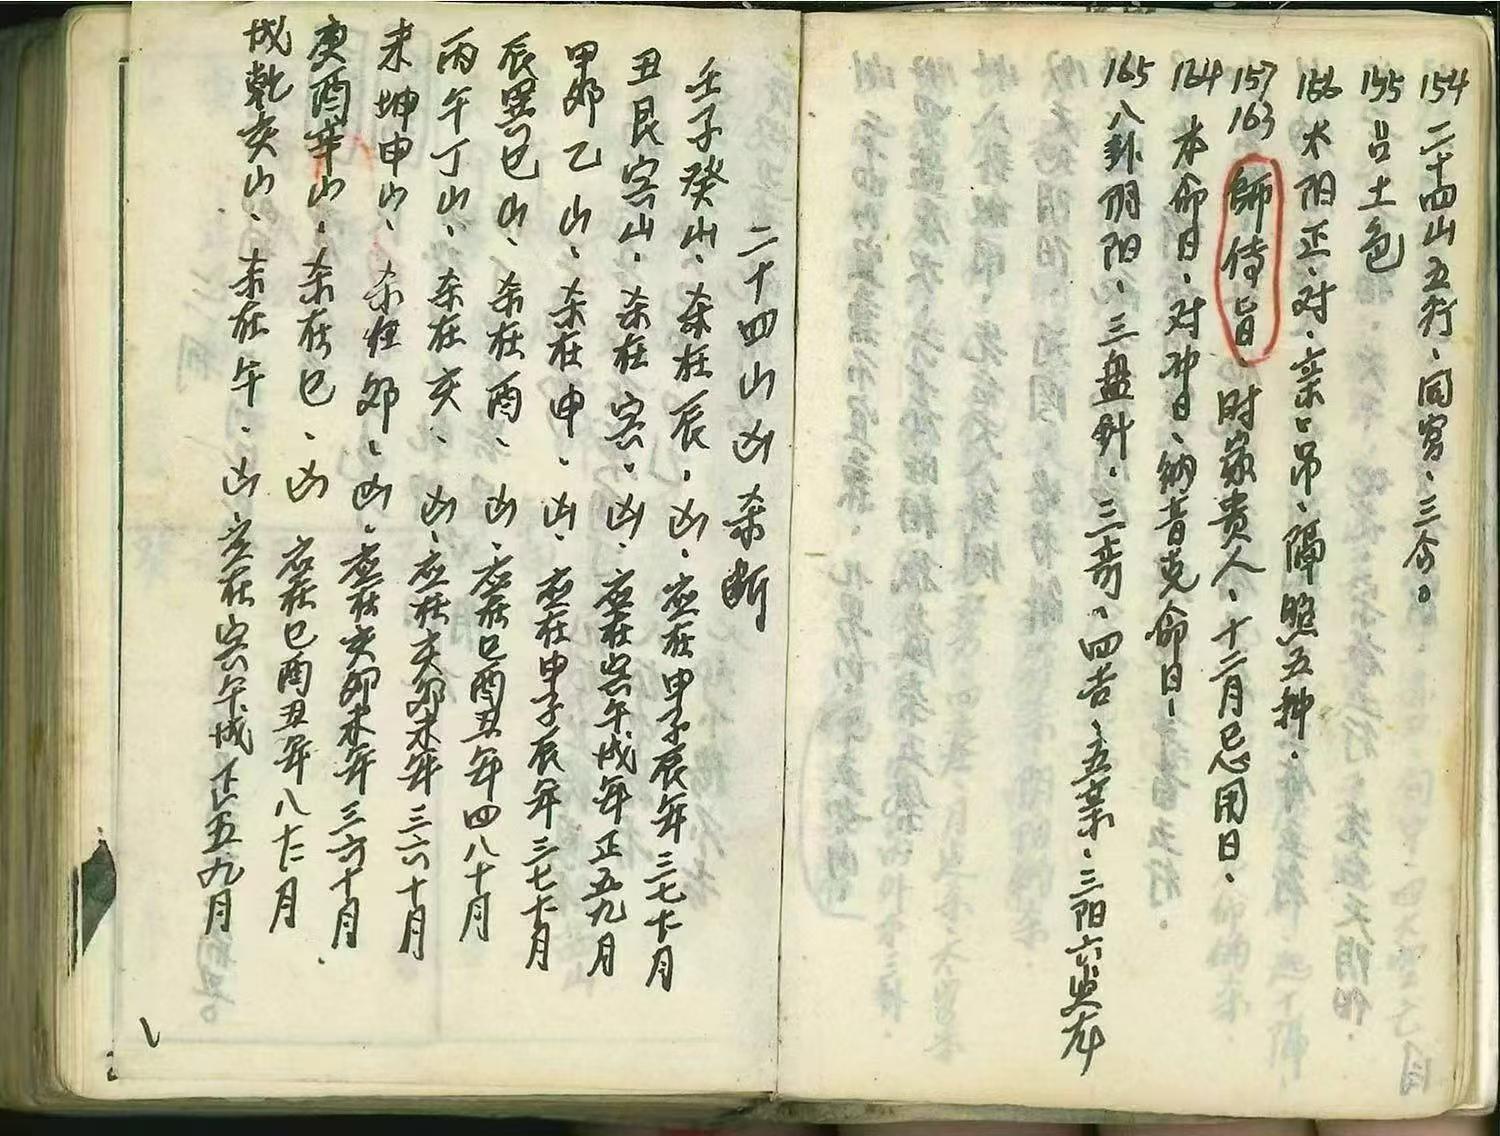 154 二十四山五行、同宫、三合。
155 吕土色
156 木阳正、对、亲、吊、隔照五抻.
157 163 師侍旨、时家贵人、十二月忌用日、
164 本命日、对冲日、纳音克命日、
165 八卦阴阳、三盘针、三奇、四吉、五亲、三阳六
二十四山凶杀断
壬子癸山、杀在辰、凶、应在甲子辰年三七十月
丑艮寅山、杀在寅、凶、应在寅午戌年正五九月
甲卯乙山、杀在申、凶、应在申子辰年三七十月
辰巽巳山、杀在酉、凶、应在巳酉丑年四八十月
丙午丁山、杀在亥、凶、应在亥卯未年三六十月
未坤申山、杀在卯、凶、应在亥卯未年三六十月
庚酉辛山、杀在巳、凶 应在巳酉丑年八十二月
戌乾亥山、杀在午、凶、应在寅午戌正五九月